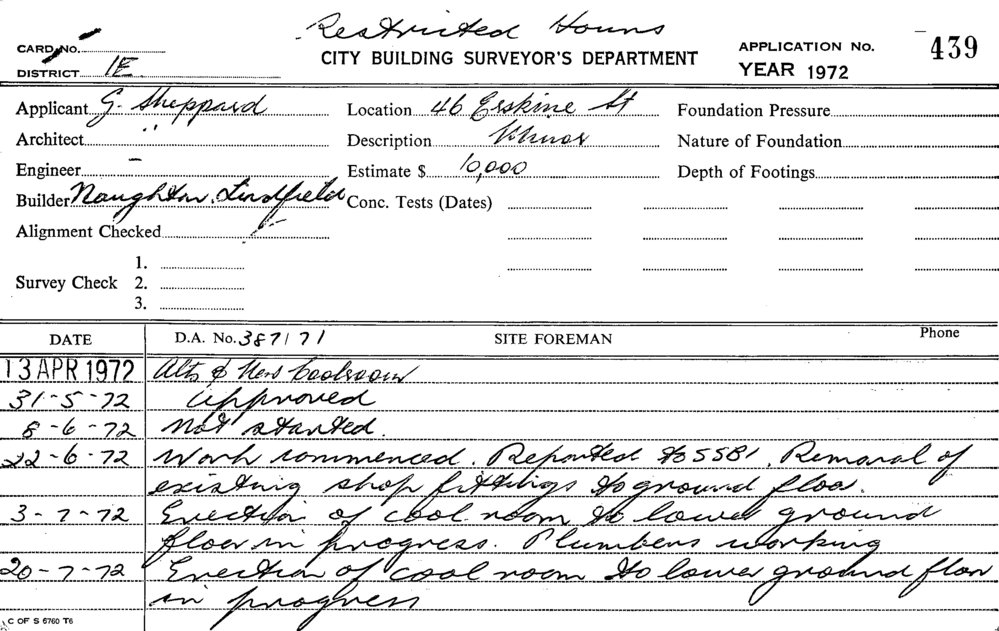 Restricted Hours
CARD No.
CITY BUILDING SURVEYOR'S DEPARTMENT
APPLICATION No. 439
DISTRICT 1E
YEAR 1972
Applicant G. Sheppard Location 46 Erskine St Foundation Pressure
Architect " Description Minor Nature of Foundation
Engineer - Estimate $ 10,000 Depth of Footings
Builder Naughton, Lindfield Conc. Tests (Dates)
Alignment Checked
1.
Survey Check 2.
3.
DATE D.A. No. 387/71 SITE FOREMAN Phone
13 APR 1972 Alts & New Coolroom
31-5-72 Approved
8-6-72 Not started.
22-6-72 Work commenced. Reported to SSB/. Removal of
existing shop fittings to ground floor.
3-7-72 Erection of cool room to lower ground
floor in progress. Plumbers working
20-7-72 Erection of cool room to lower ground floor
in progress
C OF S 6760 T6